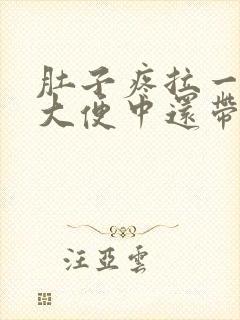 肚子疼拉一
大便中還帶
汪亞雲